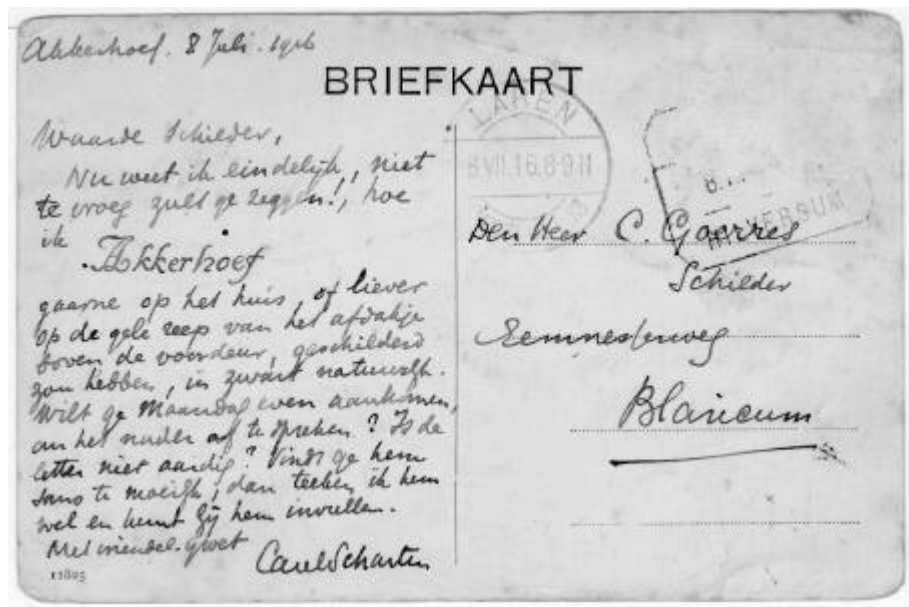 Akkerhoef. 8 Juli. 1916
BRIEFKAART
LAREN
8.VII.16.8-9 N
HILVERSUM
Waarde Schilder,
Nu weet ik eindelijk, niet
te vroeg zult ge zeggen!, hoe
ik
Akkerhoef
gaarne op het huis, of liever
op de gele reep van het afdakje
boven de voordeur, geschilderd
zou hebben, in zwart natuurlijk.
Wilt ge Maandag even aankomen,
om het nader af te spreken? Is de
letter niet aardig? Vindt ge hem
soms te moeilijk, dan teeken ik hem
wel en kunt gij hem invullen.
Met vriendel. groet
Carel Scharten
11825
Den Heer C. Goerres
Schilder
Eemnesserweg
Blaricum